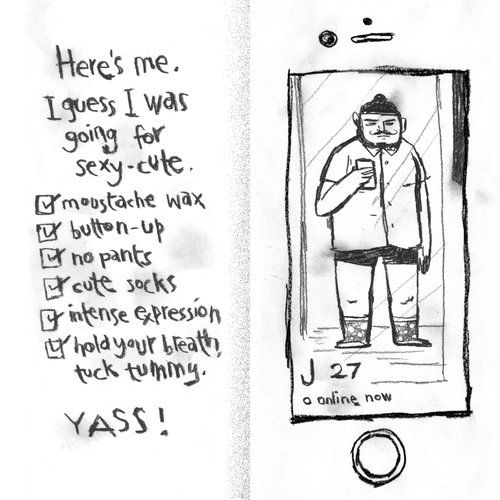 Here's me.
I guess I was
going for
sexy-cute.
moustache wax
button-up
no pants
cute socks
intense expression
hold your breath,
tuck tummy.
YASS!
J 27
online now